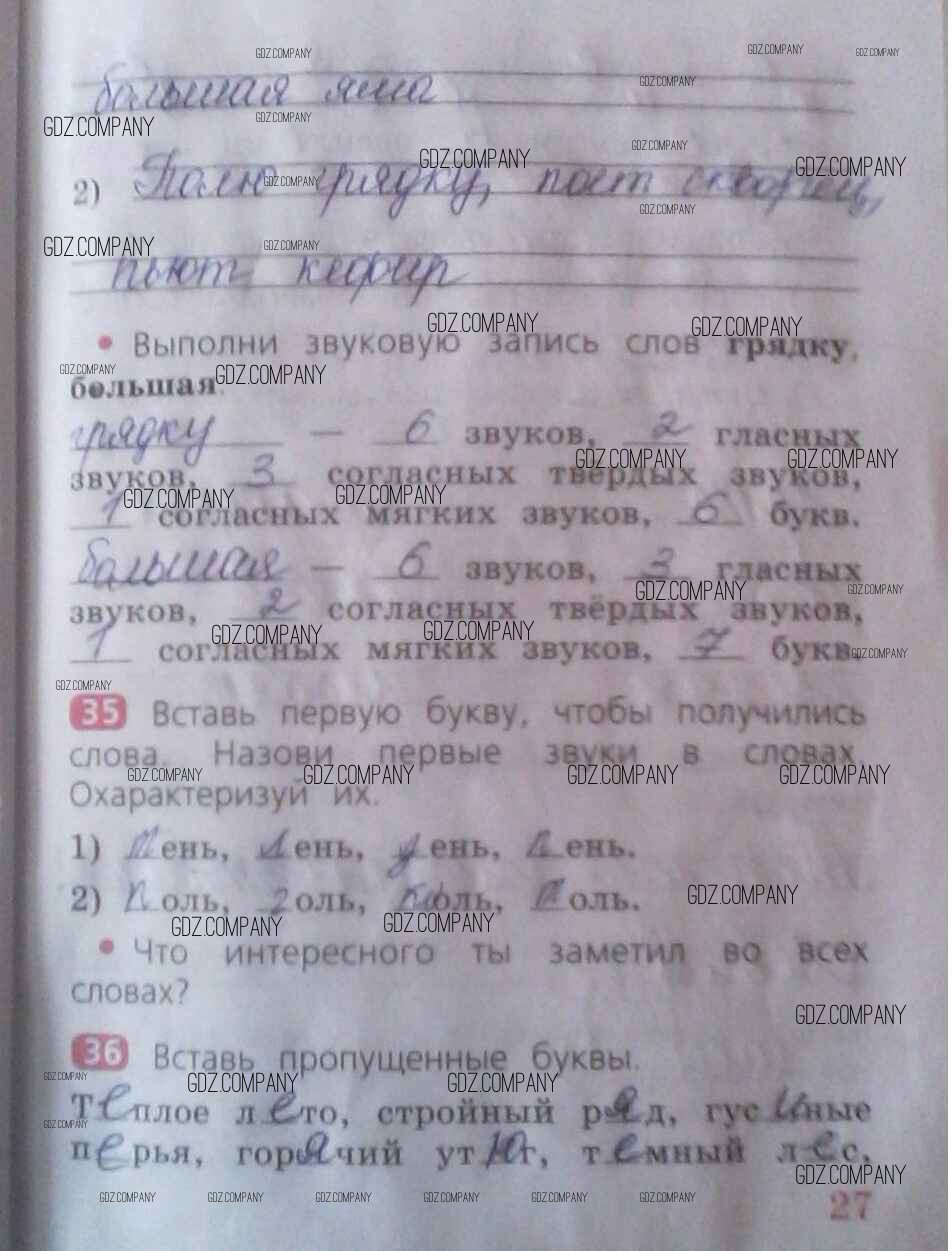 большая яма
2) Полю грядку, поёт скворец,
пьют кефир
• Выполни звуковую запись слов грядку,
большая.
грядку — 6 звуков, 2 гласных
звуков, 3 согласных твёрдых звуков,
1 согласных мягких звуков, 6 букв.
большая — 6 звуков, 3 гласных
звуков, 2 согласных твёрдых звуков,
1 согласных мягких звуков, 7 букв.
35 Вставь первую букву, чтобы получились
слова. Назови первые звуки в словах.
Охарактеризуй их.
1) ень, ень, ень, ень.
2) оль, 2оль, оль, оль.
• Что интересного ты заметил во всех
словах?
36 Вставь пропущенные буквы.
Теплое лето, стройный ряд, гусиные
перья, горячий утюг, темный лес,
27
GDZ.COMPANY